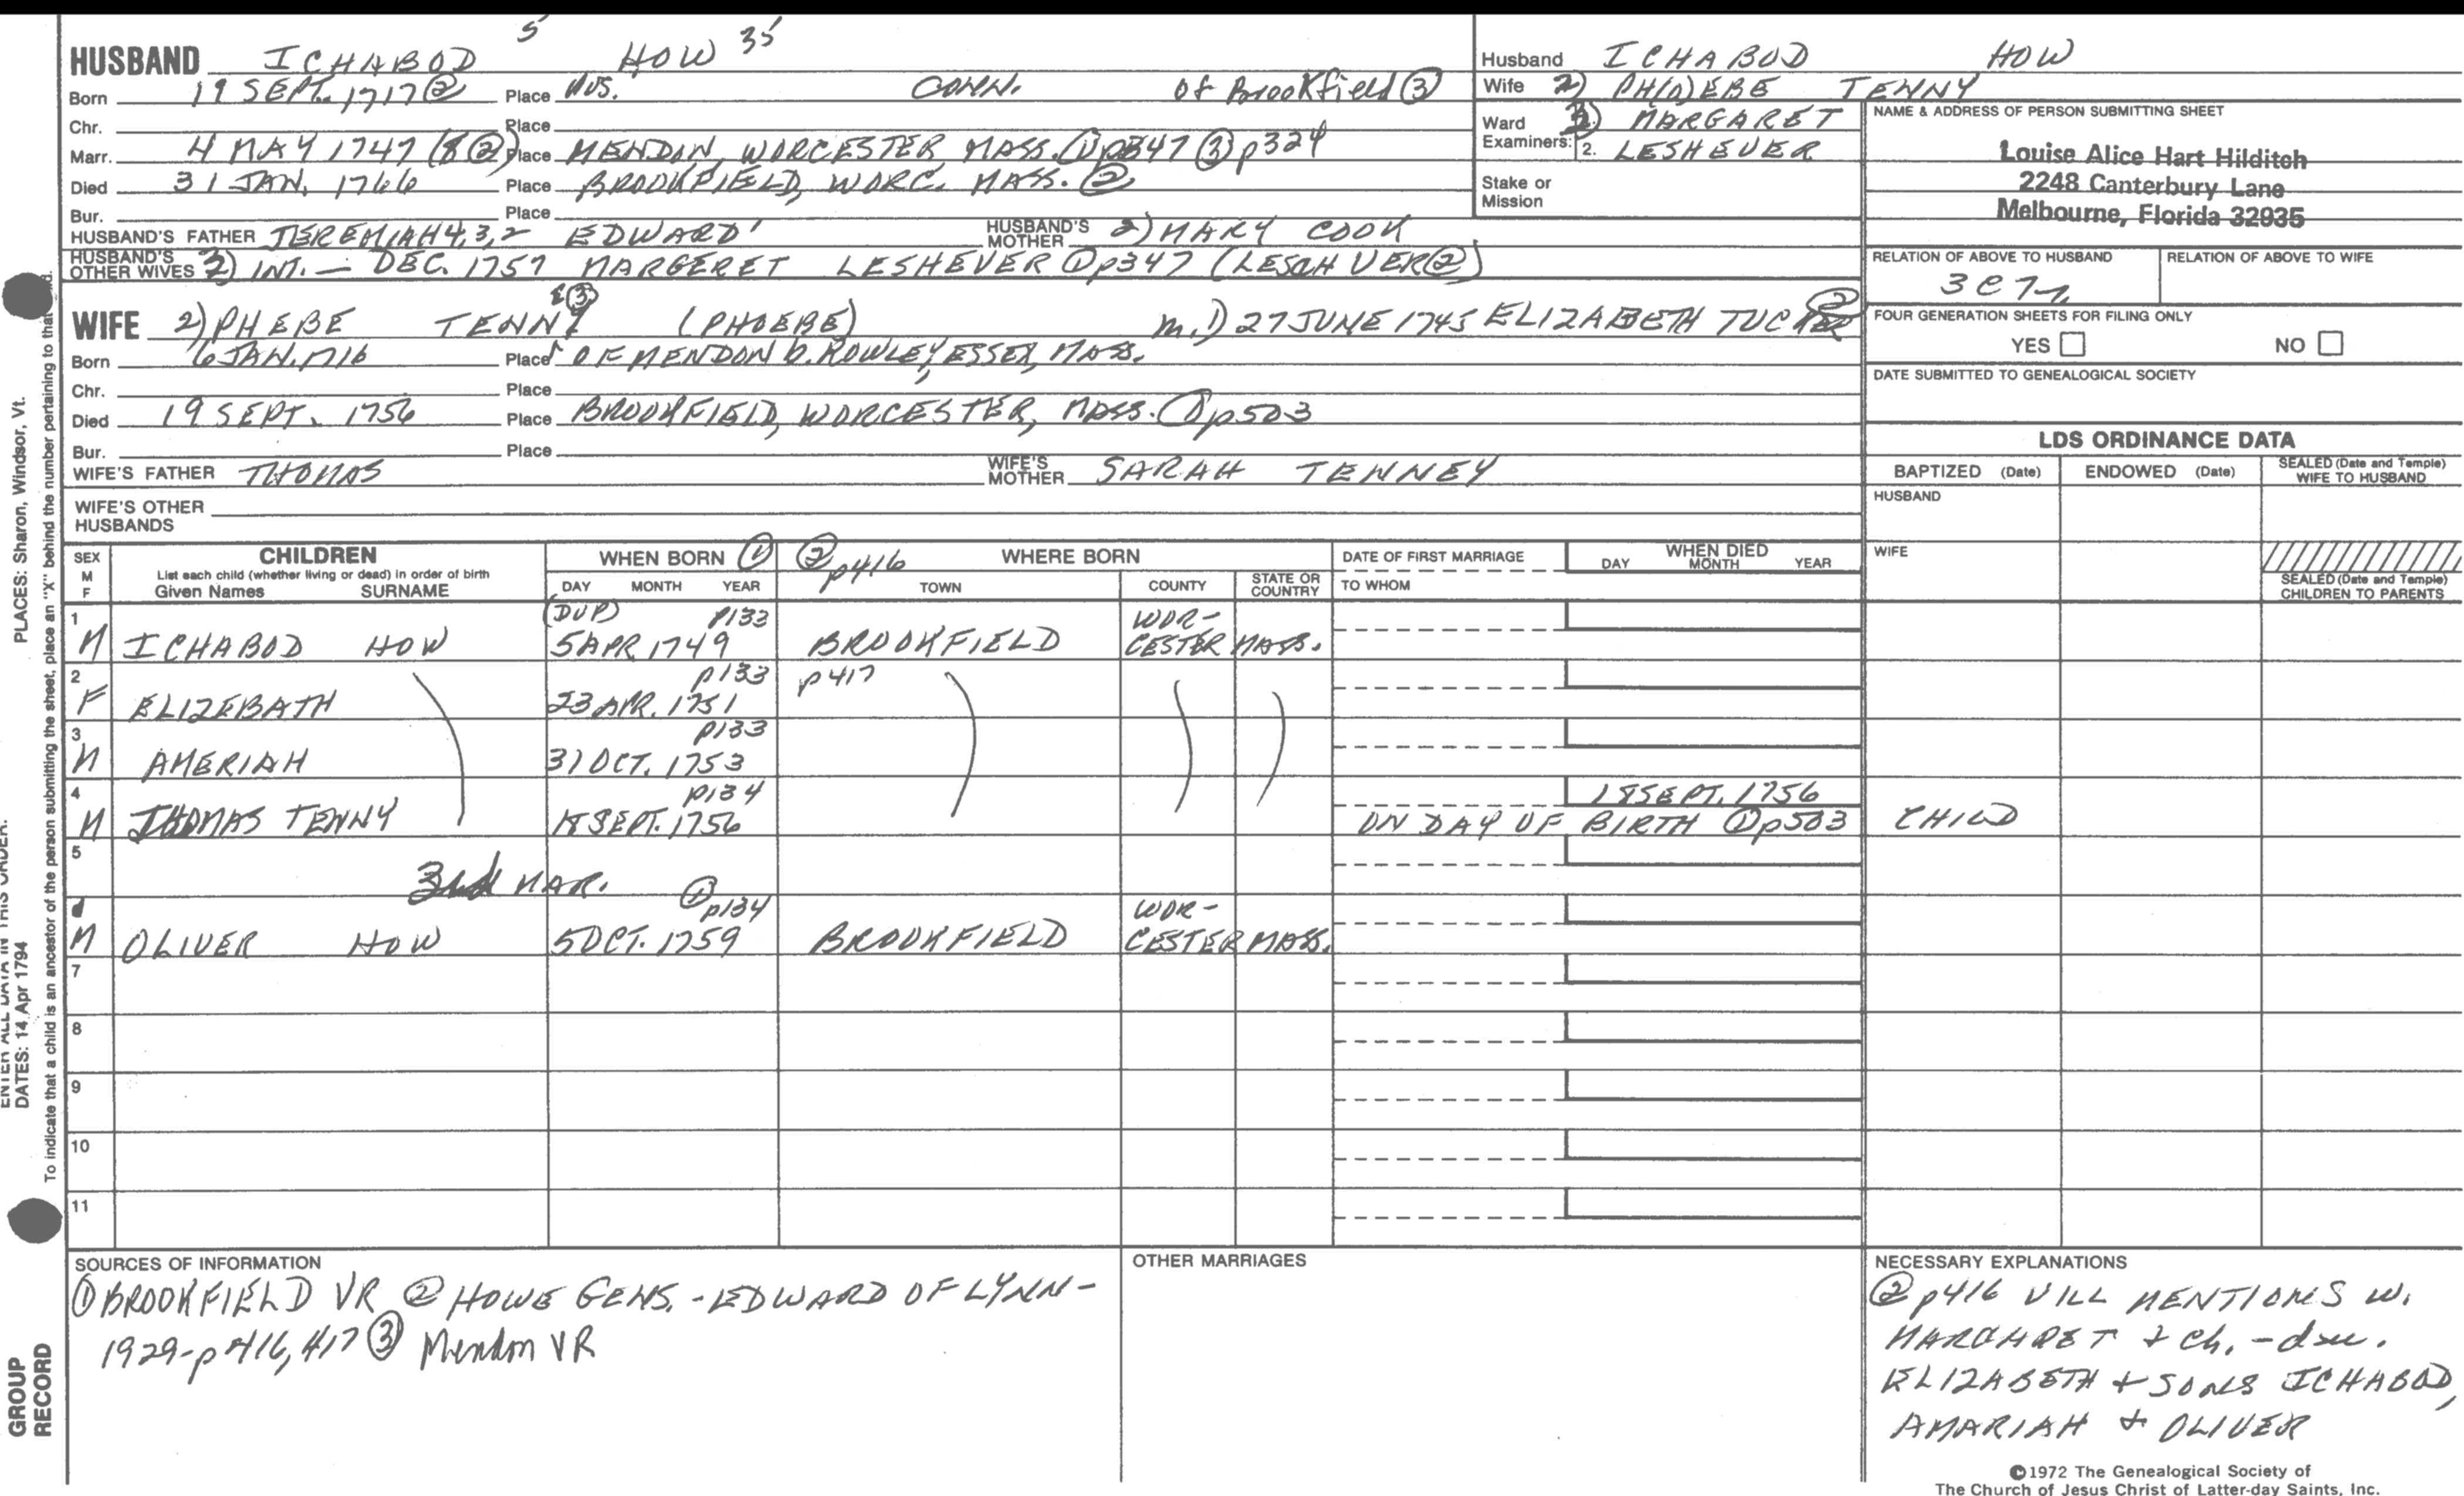 HUSBAND ICHABOD 5 HOW 35
Born 19 SEPT. 1717 ② Place CONN. Of Brookfield ③
Chr. Place
Marr. 4 MAY 1747 (8 ②) Place MENDON, WORCESTER MASS. ① p347 ③ p324
Died 31 JAN. 1766 Place BROOKFIELD, WORC. MASS. ②
Bur. Place
HUSBAND'S FATHER JEREMIAH 4,3,2 EDWARD' HUSBAND'S MOTHER 2) MARY COOK
HUSBAND'S OTHER WIVES 3) INT. — DEC. 1757 MARGERET LESHEVER ① p347 (LESCH VER ②)
WIFE 2) PHEBE TENNY ③ (PHOEBE) m. 1) 27 JUNE 1745 ELIZABETH ②
Born 6 JAN. 1716 Place OF MENDON b. ROWLEY, ESSEX, MASS.
Chr. Place
Died 19 SEPT. 1756 Place BROOKFIELD, WORCESTER, MASS. ① p503
Bur. Place
WIFE'S FATHER THOMAS WIFE'S MOTHER SARAH TENNEY
WIFE'S OTHER HUSBANDS
Husband ICHABOD HOW
Wife 2) PH(O)EBE TENNY
Ward Examiners: 3) MARGARET
2. LESHEVER
Stake or Mission
NAME & ADDRESS OF PERSON SUBMITTING SHEET
Louise Alice Hart Hilditch
2248 Canterbury Lane
Melbourne, Florida 32935
RELATION OF ABOVE TO HUSBAND RELATION OF ABOVE TO WIFE
FOUR GENERATION SHEETS FOR FILING ONLY
YES NO
DATE SUBMITTED TO GENEALOGICAL SOCIETY
LDS ORDINANCE DATA
BAPTIZED (Date) ENDOWED (Date) SEALED (Date and Temple) WIFE TO HUSBAND
HUSBAND
WIFE
SEALED (Date and Temple) CHILDREN TO PARENTS
SEX M F CHILDREN WHEN BORN ① ② p416 WHERE BORN DATE OF FIRST MARRIAGE WHEN DIED
List each child (whether living or dead) in order of birth
Given Names SURNAME DAY MONTH YEAR TOWN COUNTY STATE OR COUNTRY TO WHOM DAY MONTH YEAR
1 (DUP) P133 WOR-
M ICHABOD HOW 5 APR 1749 BROOKFIELD CESTER MASS.
2 p133 p417
F ELIZEBATH 23 APR. 1751
3 p133
M AMERIAH 31 OCT. 1753
4 p134 18 SEPT. 1756
M THOMAS TENNY 18 SEPT. 1756 ON DAY OF BIRTH ① p503 CHILD
5
3rd MAR. ① p134 WOR-
M OLIVER HOW 5 OCT. 1759 BROOKFIELD CESTER MASS.
7
8
9
10
11
SOURCES OF INFORMATION
① BROOKFIELD VR ② HOWE GENS. - EDWARD OF LYNN -
1929 - p 416, 417 ③ Mendon VR
OTHER MARRIAGES
NECESSARY EXPLANATIONS
② p416 WILL MENTIONS W.
MARGARET + Ch. - dau.
ELIZABETH + SONS ICHABOD,
AMARIAH + OLIVER
©1972 The Genealogical Society of
The Church of Jesus Christ of Latter-day Saints, Inc.
PLACES: Sharon, Windsor, Vt.
To indicate that a child is an ancestor of the person submitting the sheet, place an "X" behind the number pertaining to that
ENTER ALL DATA IN THIS ORDER:
DATES: 14 Apr 1794
GROUP
RECORD